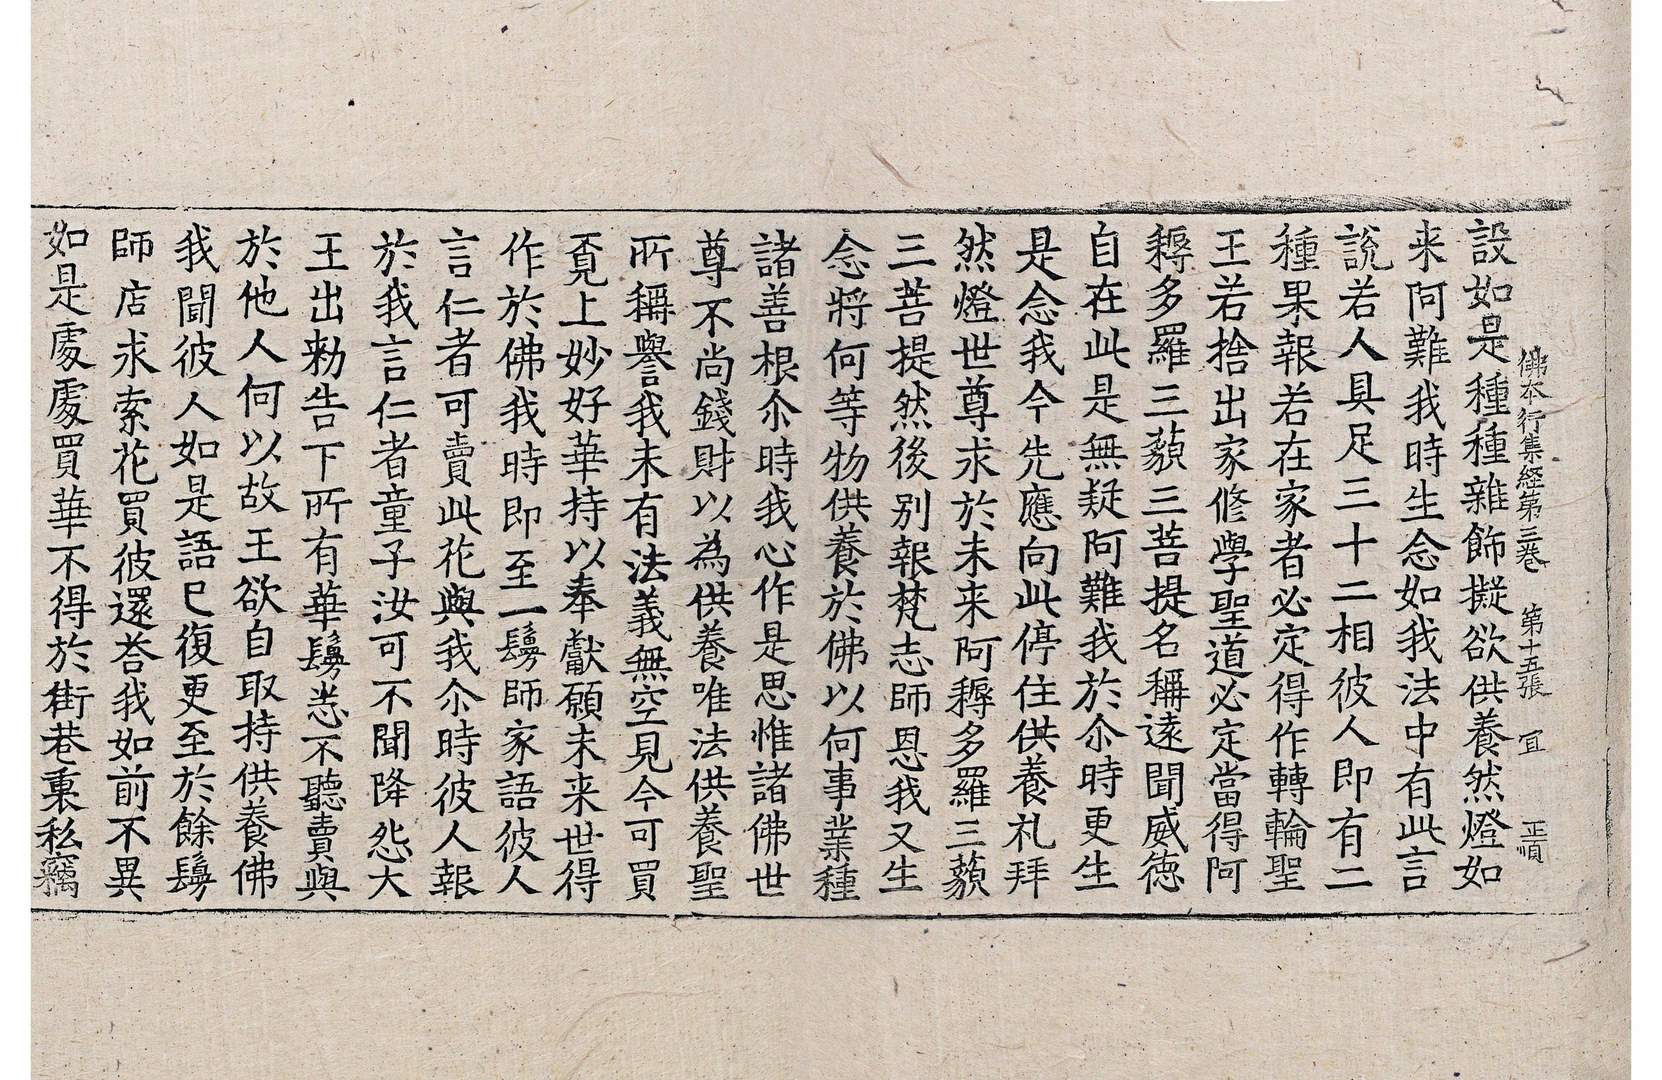 佛本行集經第三卷 第十五張 冝 正順
設如是種種雜飾擬欲供養然燈如
来阿難我時生念如我法中有此言
說若人具足三十二相彼人即有二
種果報若在家者必定得作轉輪聖
王若捨出家修學聖道必定當得阿
耨多羅三藐三菩提名稱遠聞威德
自在此是無疑阿難我於尒時更生
是念我今先應向此停住供養礼拜
然燈世尊求於未来阿耨多羅三藐
三菩提然後別報梵志師恩我又生
念將何等物供養於佛以何事業種
諸善根尒時我心作是思惟諸佛世
尊不尚錢財以為供養唯法供養聖
所稱譽我未有法義無空見今可買
覔上妙好華持以奉獻願未来世得
作於佛我時即至一鬘師家語彼人
言仁者可賣此花與我尒時彼人報
於我言仁者童子汝可不聞降怨大
王出勑告下所有華鬘悉不聽賣與
於他人何以故王欲自取持供養佛
我聞彼人如是語已復更至於餘鬘
師店求索花買彼還荅我如前不異
如是處處買華不得於街巷裏私竊